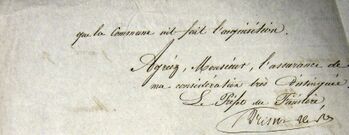 que la Commune ait fait l'acquisition.
Agréez, Monsieur, l'assurance de
ma considération très distinguée
Le Préfet du Finistère